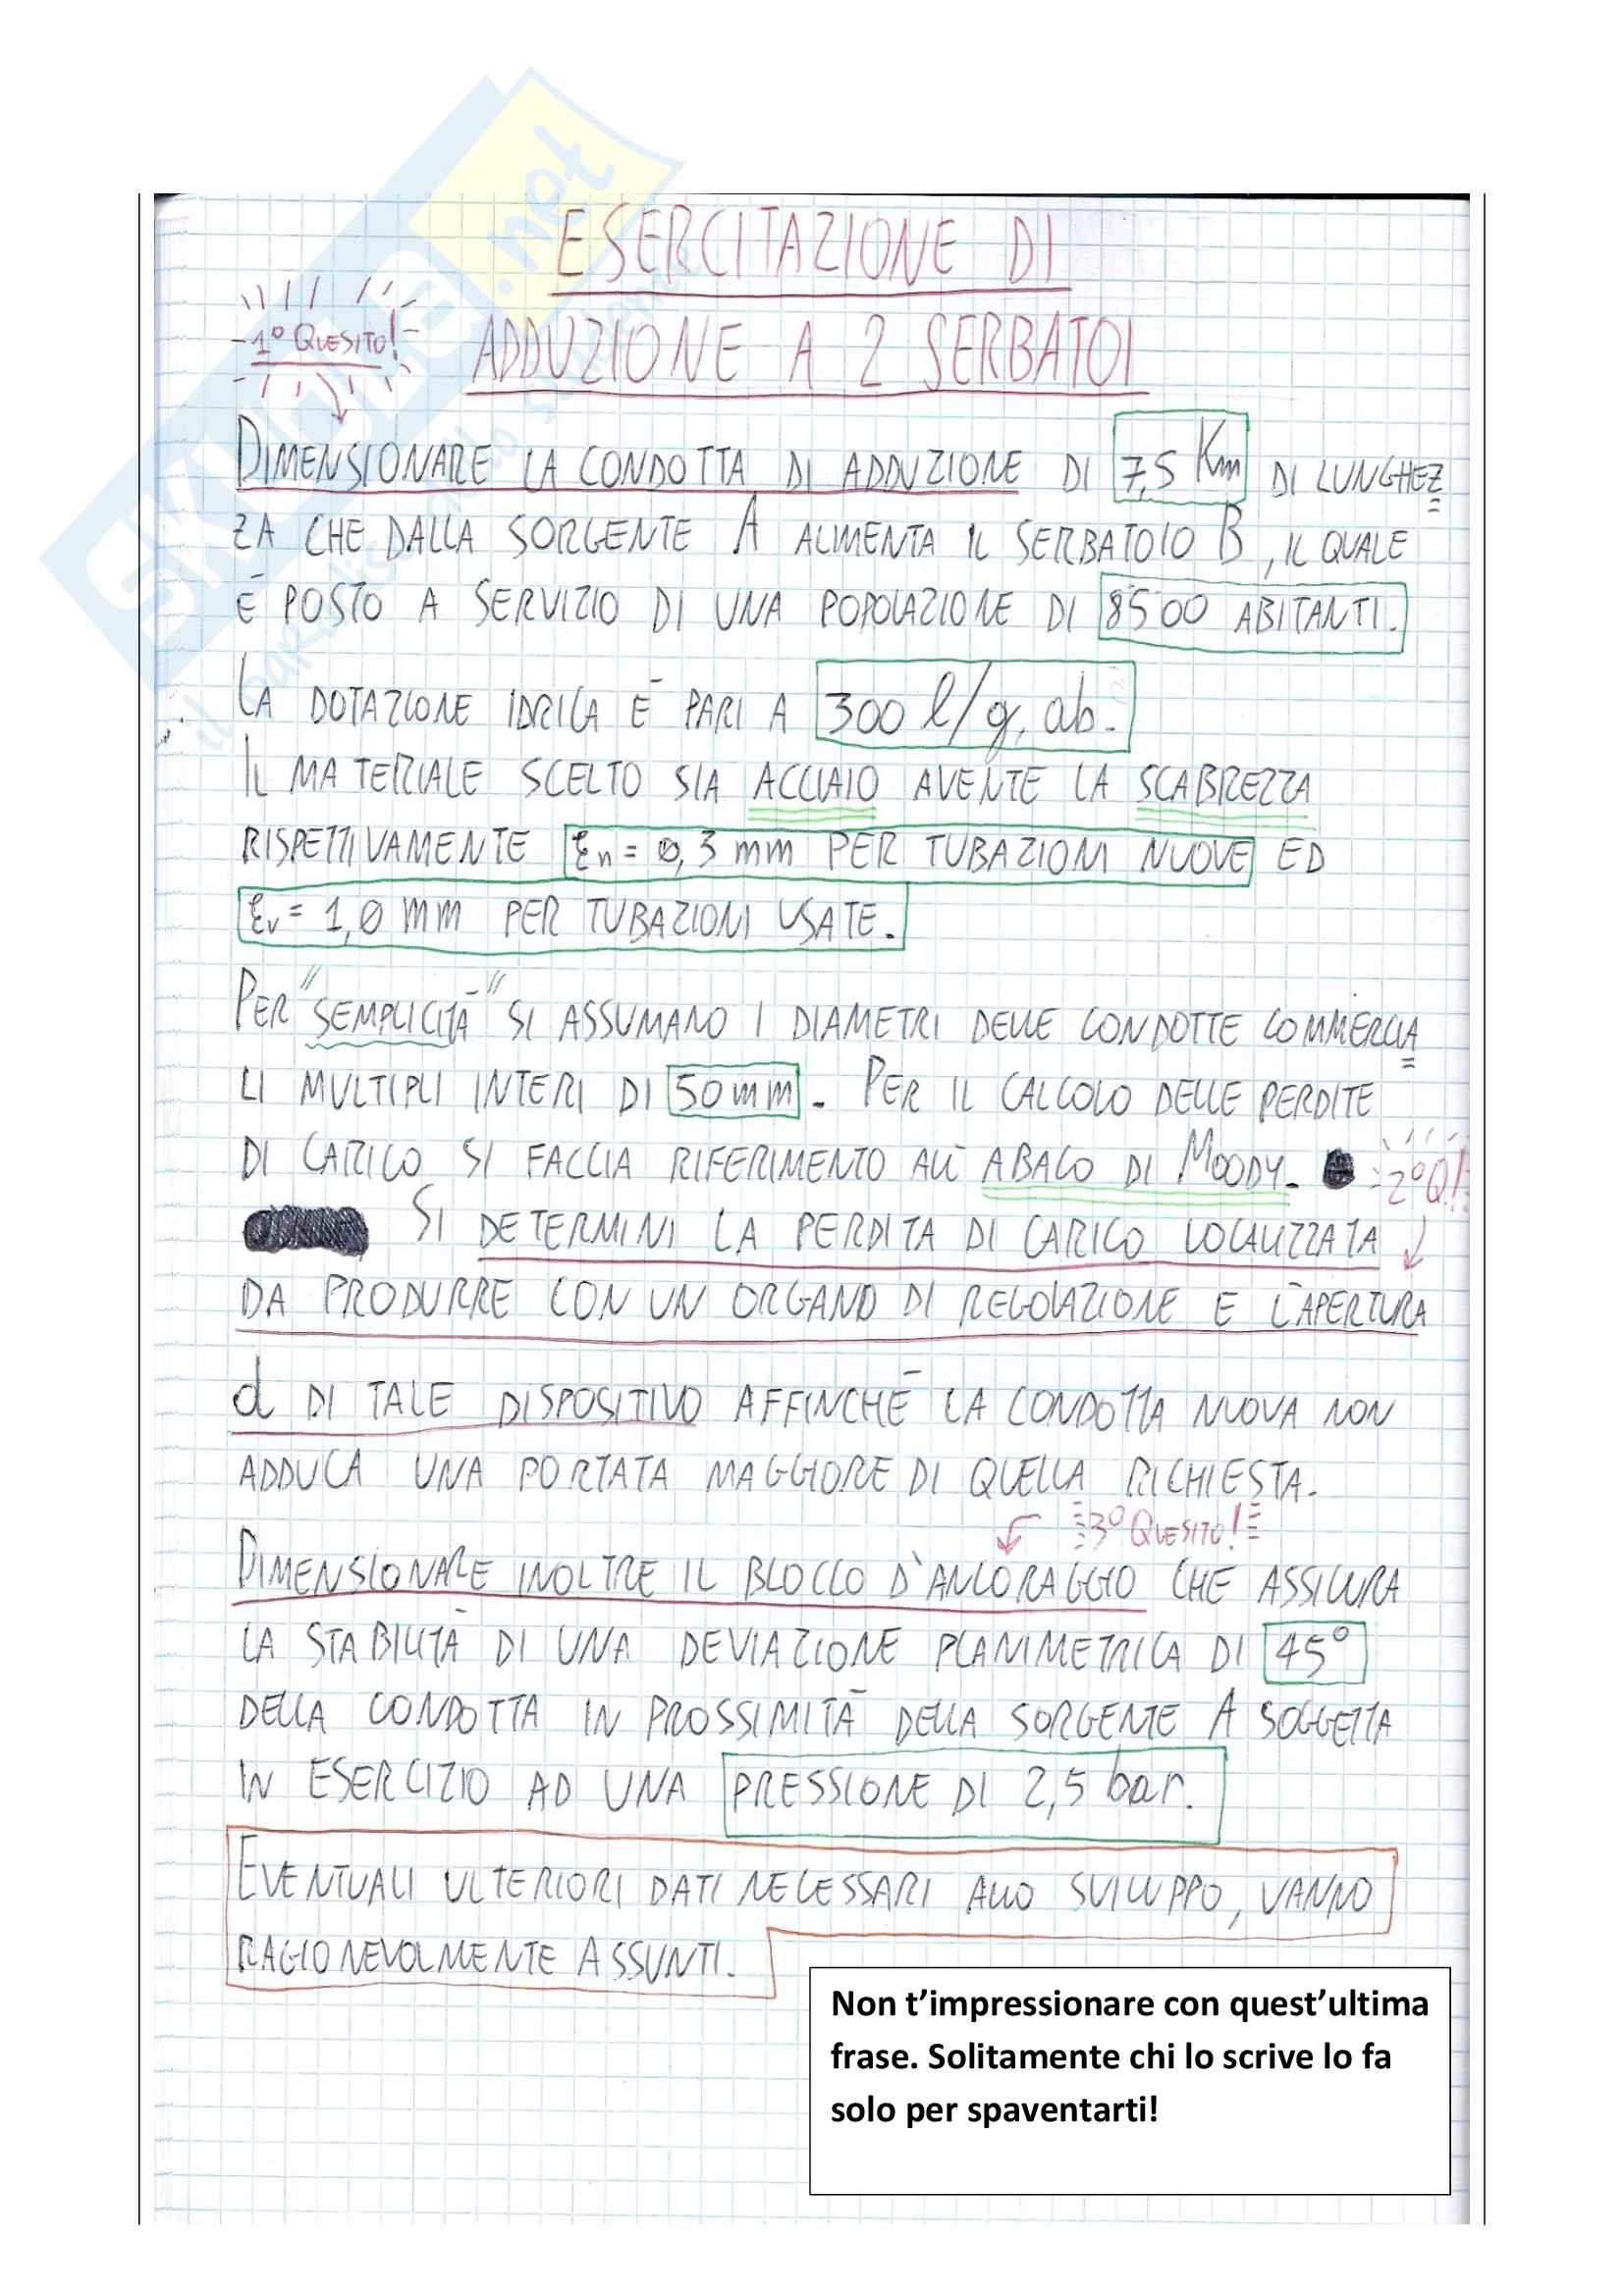 ESERCITAZIONE DI
1° QUESITO!
ADDUZIONE A 2 SERBATOI
DIMENSIONARE LA CONDOTTA DI ADDUZIONE DI 7,5 Km DI LUNGHEZ
ZA CHE DALLA SORGENTE A ALIMENTA IL SERBATOIO B, IL QUALE
È POSTO A SERVIZIO DI UNA POPOLAZIONE DI 8500 ABITANTI.
LA DOTAZIONE IDRICA È PARI A 300 l/g, ab.
IL MATERIALE SCELTO SIA ACCIAIO AVENTE LA SCABREZZA
RISPETTIVAMENTE ξn = 0,3 mm PER TUBAZIONI NUOVE ED
ξv = 1,0 mm PER TUBAZIONI USATE.
PER "SEMPLICITÀ" SI ASSUMANO I DIAMETRI DELLE CONDOTTE COMMERCIA
LI MULTIPLI INTERI DI 50 mm. PER IL CALCOLO DELLE PERDITE
DI CARICO SI FACCIA RIFERIMENTO ALL'ABACO DI MOODY. 2°Q!
SI DETERMINI LA PERDITA DI CARICO LOCALIZZATA
DA PRODURRE CON UN ORGANO DI REGOLAZIONE E L'APERTURA
d DI TALE DISPOSITIVO AFFINCHÉ LA CONDOTTA NUOVA NON
ADDUCA UNA PORTATA MAGGIORE DI QUELLA RICHIESTA.
3° QUESITO!
DIMENSIONARE INOLTRE IL BLOCCO D'ANCORAGGIO CHE ASSICURA
LA STABILITÀ DI UNA DEVIAZIONE PLANIMETRICA DI 45°
DELLA CONDOTTA IN PROSSIMITÀ DELLA SORGENTE A SOGGETTA
IN ESERCIZIO AD UNA PRESSIONE DI 2,5 bar.
EVENTUALI ULTERIORI DATI NECESSARI ALLO SVILUPPO, VANNO
RAGIONEVOLMENTE ASSUNTI.
Non t'impressionare con quest'ultima
frase. Solitamente chi lo scrive lo fa
solo per spaventarti!